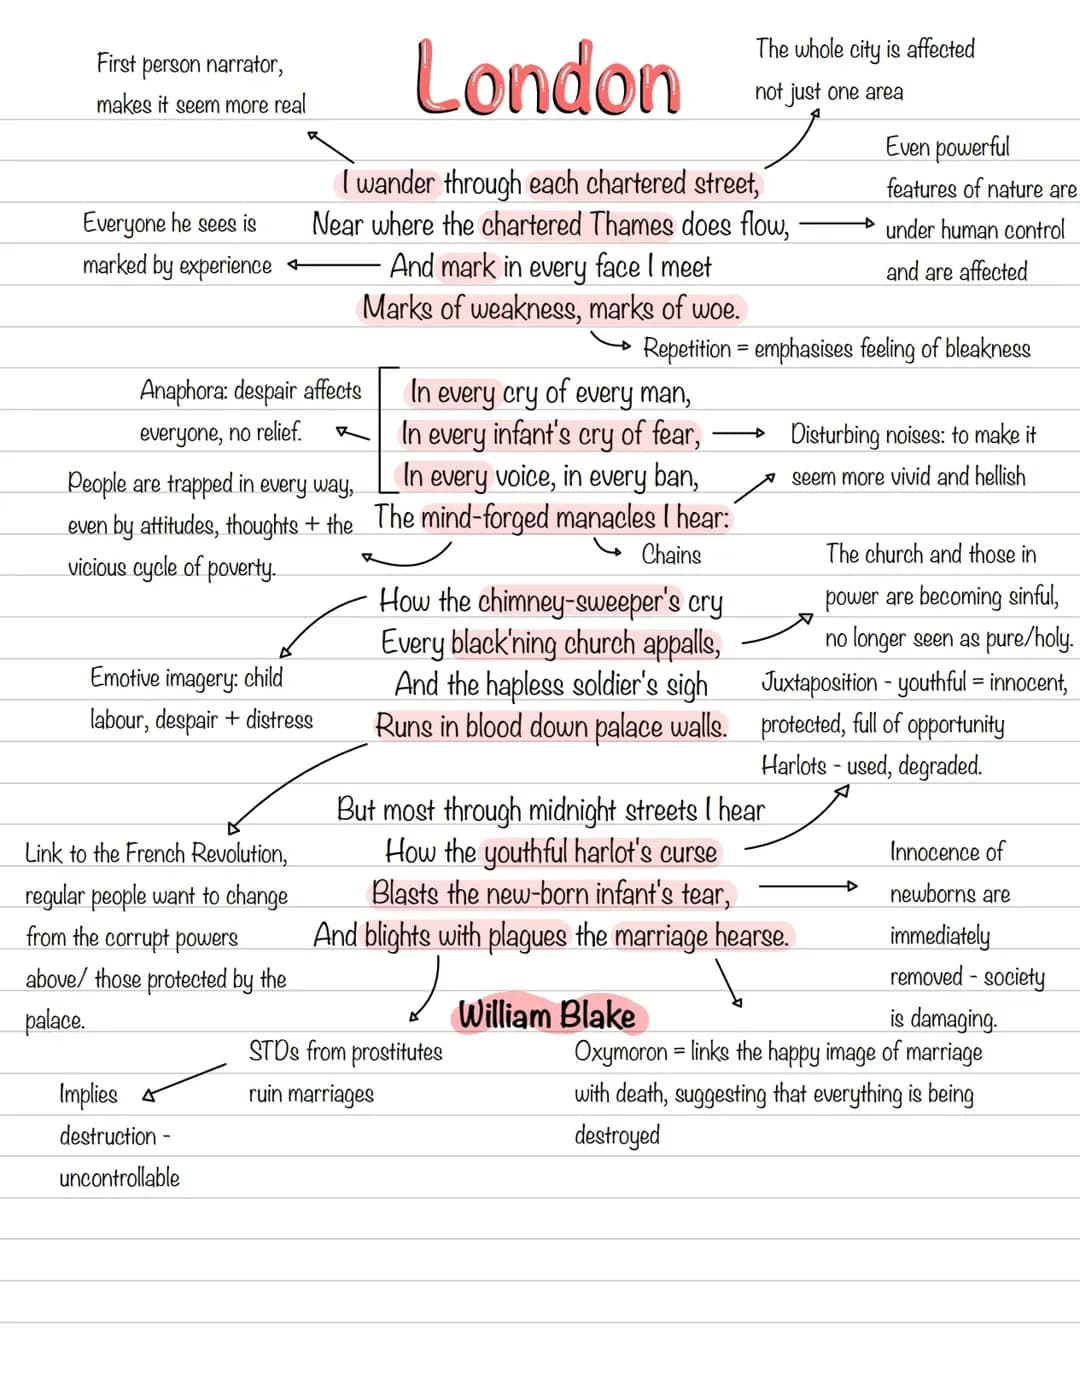 London
First person narrator,
makes it seem more real
The whole city is affected
not just one area
I wander through each chartered street,
Near where the chartered Thames does flow,
And mark in every face I meet
Marks of weakness, marks of woe.
Even powerful
features of nature are
under human control
and are affected
Everyone he sees is
marked by experience
Repetition = emphasises feeling of bleakness
Anaphora: despair affects
everyone, no relief.
In every cry of every man,
In every infant's cry of fear,
In every voice, in every ban,
The mind-forged manacles I hear:
Disturbing noises: to make it
seem more vivid and hellish
People are trapped in every way,
even by attitudes, thoughts + the
vicious cycle of poverty.
Chains
How the chimney-sweeper's cry
Every black'ning church appalls,
And the hapless soldier's sigh
Runs in blood down palace walls.
The church and those in
power are becoming sinful,
no longer seen as pure/holy.
Emotive imagery: child
labour, despair + distress
Juxtaposition - youthful = innocent,
protected, full of opportunity
Harlots - used, degraded.
But most through midnight streets I hear
How the youthful harlot's curse
Blasts the new-born infant's tear,
And blights with plagues the marriage hearse.
Link to the French Revolution,
regular people want to change
from the corrupt powers
above/ those protected by the
palace.
Innocence of
newborns are
immediately
removed - society
is damaging.
William Blake
STDs from prostitutes
ruin marriages
Oxymoron = links the happy image of marriage
with death, suggesting that everything is being
destroyed
Implies
destruction -
uncontrollable